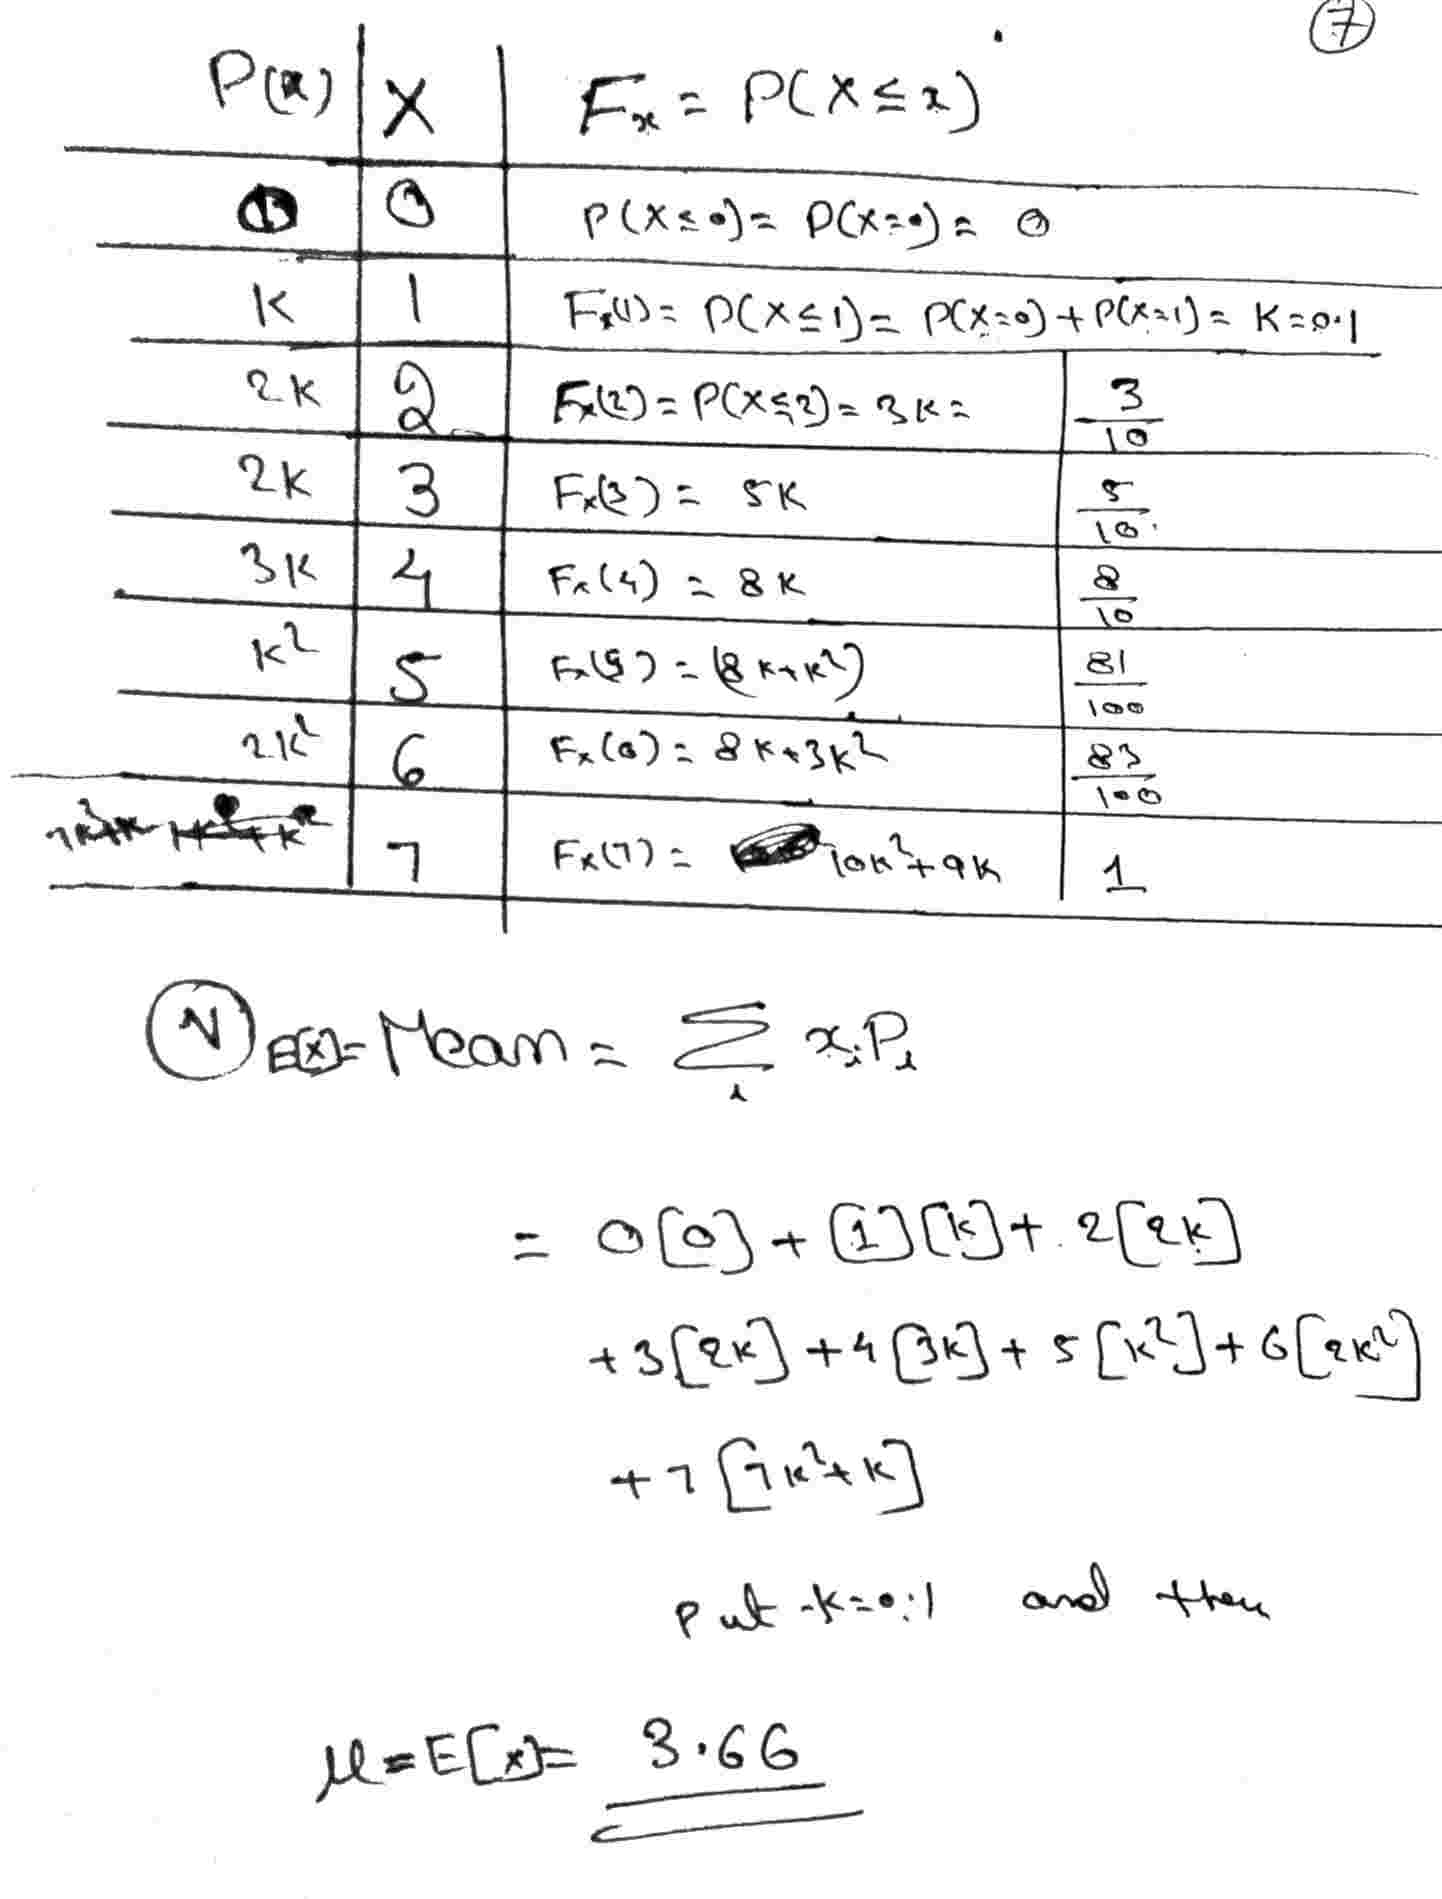 7
P(x) X Fx = P(X ≤ x)
0 0 P(X ≤ 0) = P(X=0) = 0
K 1 Fx(1) = P(X ≤ 1) = P(X=0) + P(X=1) = K = 0.1
2K 2 Fx(2) = P(X ≤ 2) = 3K = 3/10
2K 3 Fx(3) = 5K 5/10
3K 4 Fx(4) = 8K 8/10
K² 5 Fx(5) = (8K+K²) 81/100
2K² 6 Fx(6) = 8K+3K² 83/100
7K²+K 7 Fx(7) = 10K²+9K 1
E[X] = Mean = Σ xᵢPᵢ
i
= 0[0] + [1][K] + 2[2K]
+3[2K] + 4[3K] + 5[K²] + 6[2K²]
+7[7K²+K]
Put K=0.1 and then
μ = E[X] = 3.66